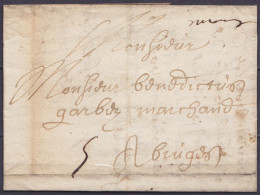 Monsieur
Monsieur benedictus
garbez marchand
5
A bruges